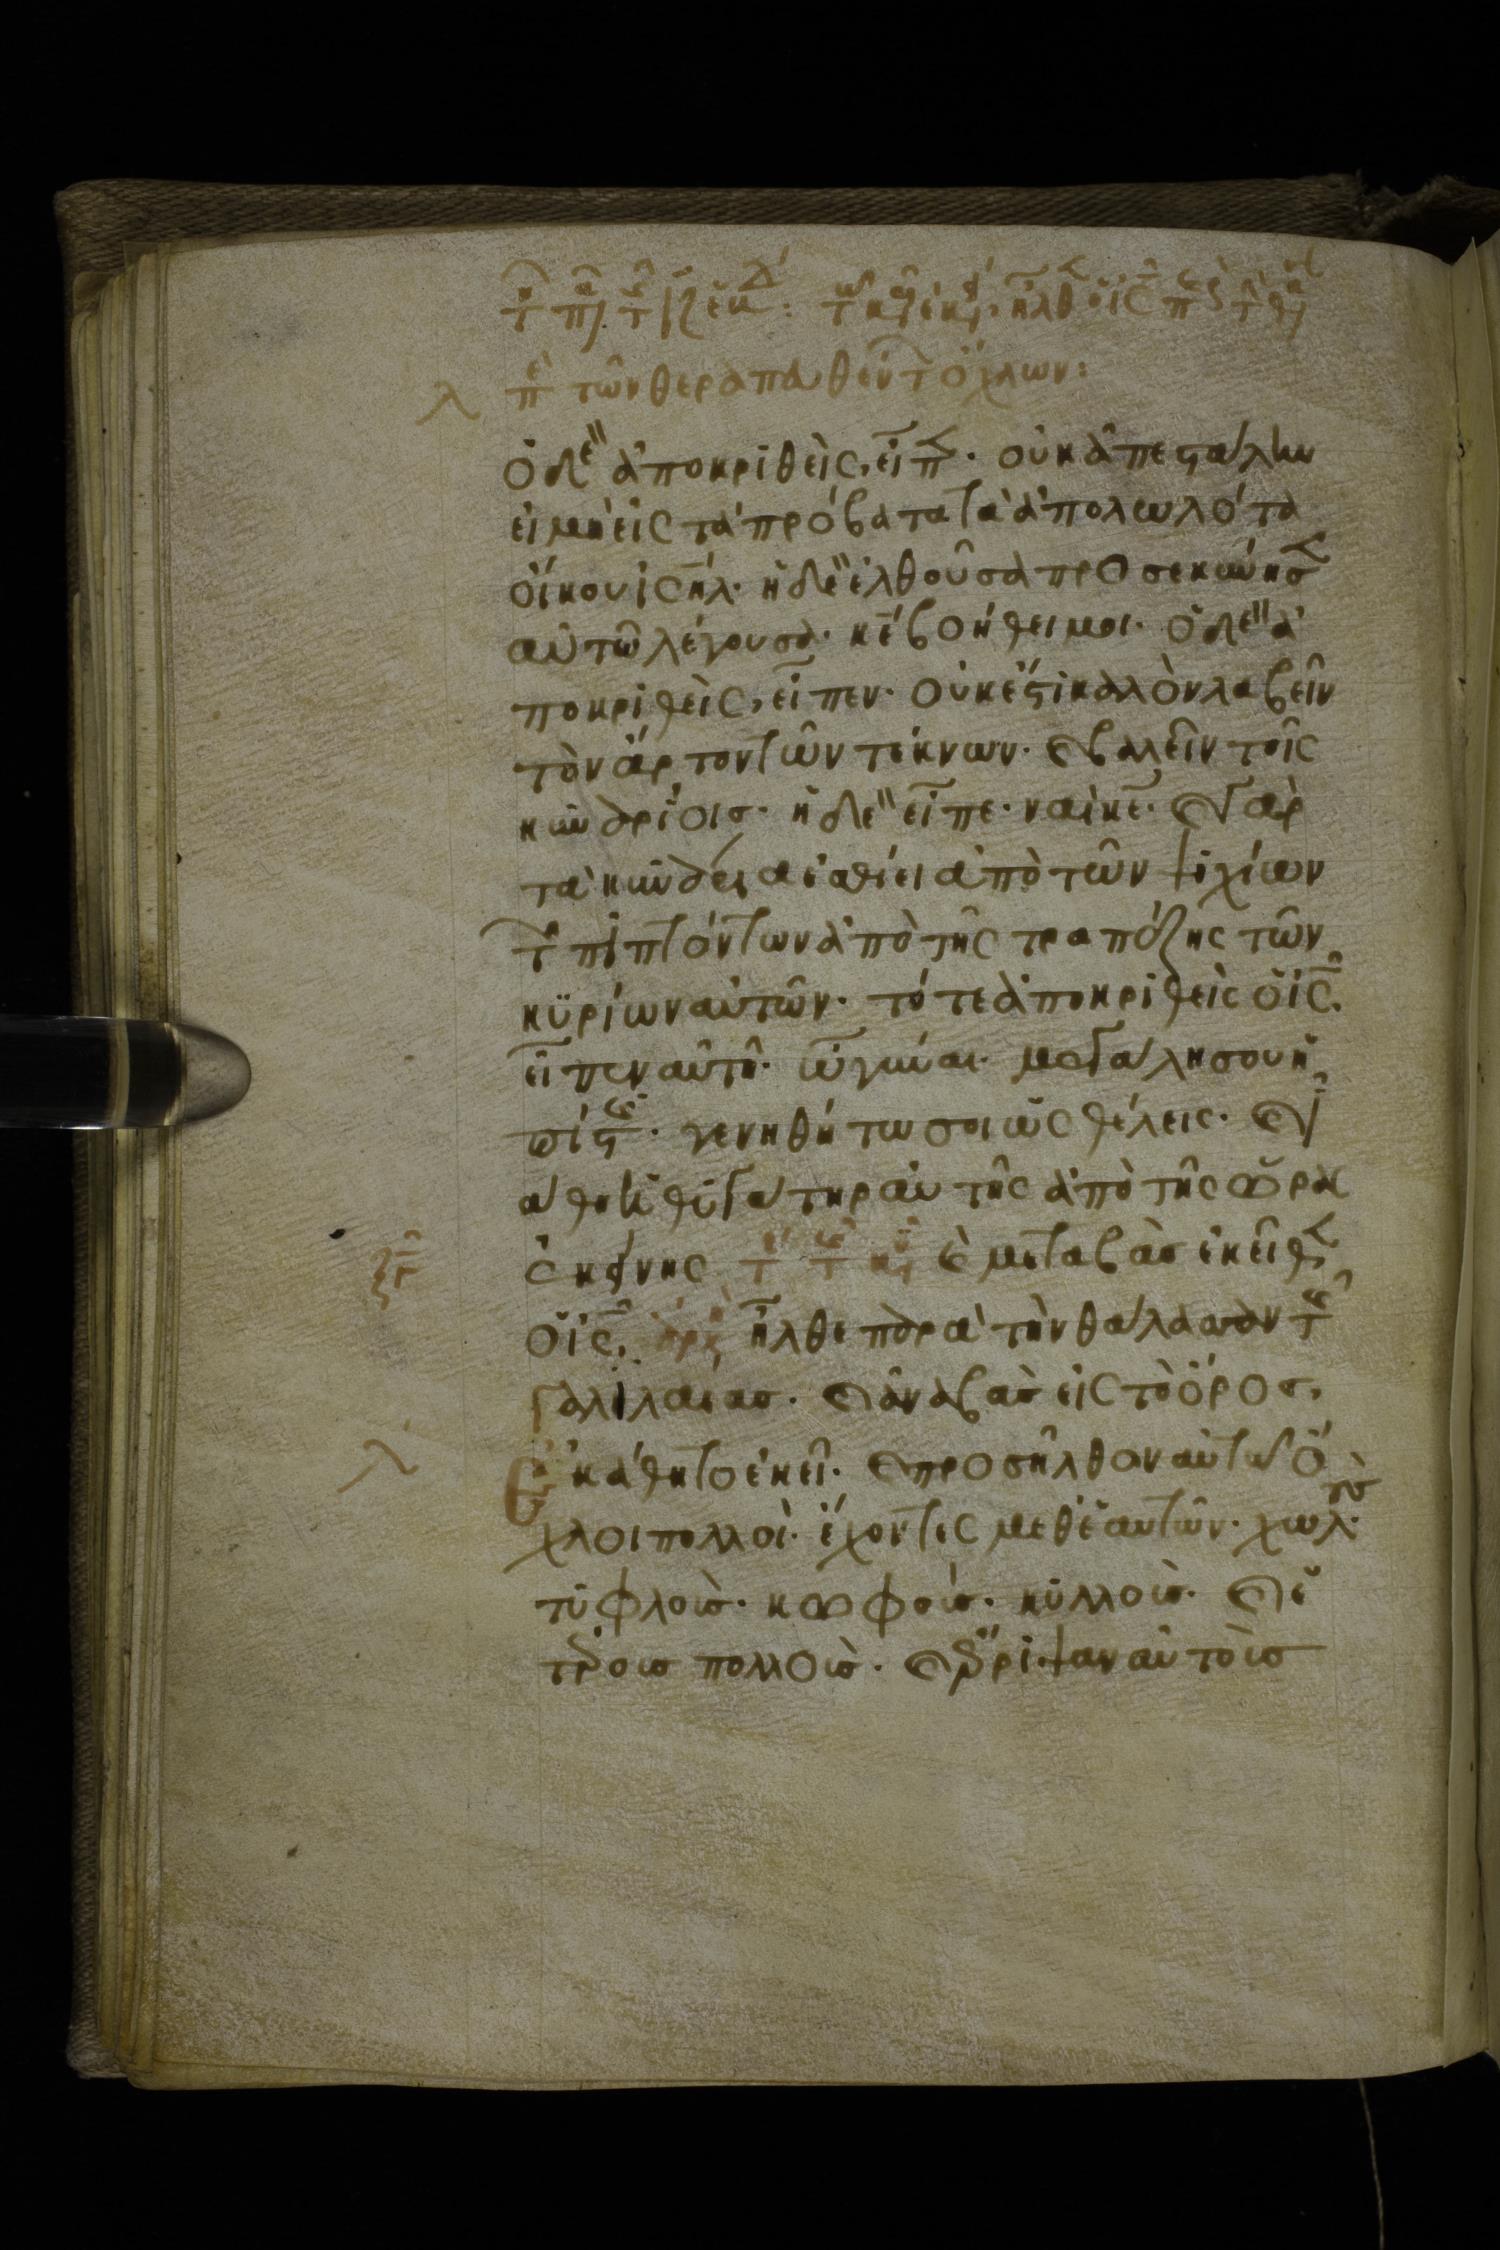 λ πε τῶν θεραπευθέντ ὄχλων:
ὁ δὲ ἀποκριθεὶς, εἶπ. οὐκ ἀπεστάλην
εἰ μὴ εἰς τὰ πρόβατα τὰ ἀπολωλότα
οἴκου ιςηλ. ἡ δὲ ἐλθοῦσα προσεκύνησ
αὐτῶ λέγουσα. κε βοήθει μοι. ὁ δὲ ἀ
ποκριθεὶς, εἶπεν. οὐκ ἔστι καλὸν λαβεῖν
τὸν ἄρτον τῶν τέκνων. καὶ βαλεῖν τοῖς
κυναρίοισ. ἡ δὲ εἶπε. ναὶ κε. καὶ γὰρ
τὰ κυνάρια ἐσθίει ἀπὸ τῶν ψιχίων
τῶν πιπτόντων ἀπὸ τῆς τραπέζης τῶν
κϋρίων αὐτῶν. τότε ἀποκριθεὶς ὁ ις.
εἶπεν αὐτῆ. ὦ γύναι. μεγάλη σου ἡ
πίστις. γενηθήτω σοι ὡς θέλεις. καὶ ἰ
άθη ἡ θυγάτηρ αὐτῆς ἀπὸ τῆς ὥρας
ἐκείνης τ τ κυ καὶ μεταβὰσ ἐκεῖθεν
ὁ ις, ἀρχ ἦλθε παρὰ τὴν θάλασσαν τῆς
γαλιλαίασ. καὶ ἀναβὰσ εἰς τὸ ὄροσ,
λ ἐκάθητο ἐκεῖ. καὶ προσῆλθον αὐτῶ ὄ
χλοι πολλοὶ. ἔχοντες μεθ' ἑαυτῶν. χωλοὺσ.
τυφλοὺσ. κωφοὺσ. κυλλοὺσ. καὶ ἑ
τέρουσ πολλοὺσ. καὶ ἔρριψαν αὐτοὺσ